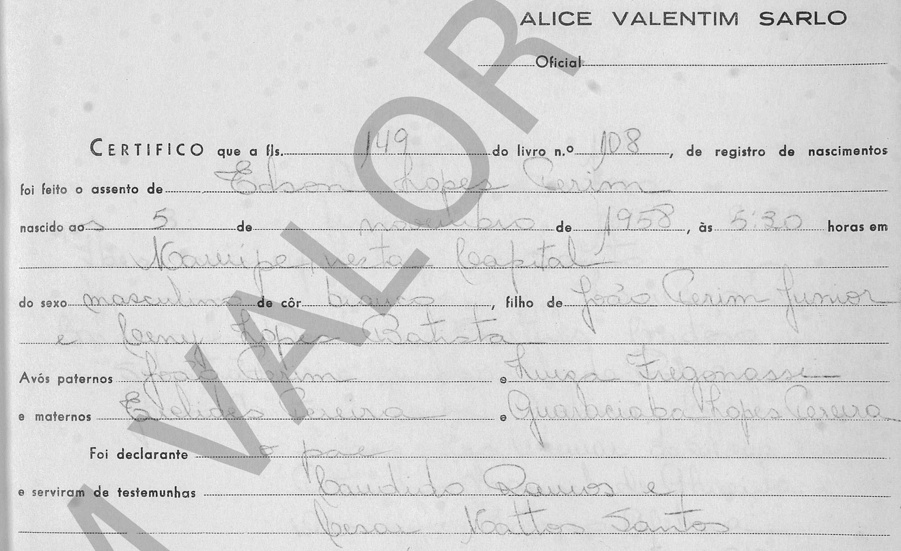 ALICE VALENTIM SARLO
Oficial
CERTIFICO que a fls. 149 do livro n.º 108, de registro de nascimentos
foi feito o assento de Edson Lopes Perim
nascido aos 5 de novembro de 1958, às 5:30 horas em
Maruipe, nesta Capital
do sexo masculino de côr branco, filho de João Perim Junior
e Ceny Lopes Batista
Avós paternos João Perim e Luiza Fregonassi
e maternos Euclides Pereira e Guaraciaba Lopes Pereira
Foi declarante o pae
e serviram de testemunhas Candido Ramos e
Cesar Mattos Santos
M VALOR